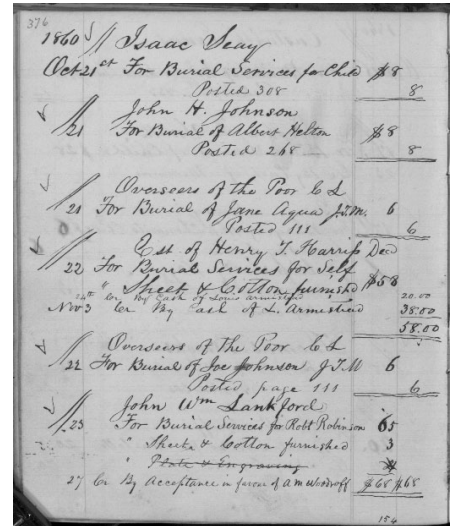 376
1860 // Isaac Seay
Oct 21st For Burial Services for Child $8
Posted 308 8
John H. Johnson
// 21 For Burial of Albert Helton $8
Posted 268 8
Overseers of the Poor C L
// 21 For Burial of Jane Aqua J.T.M. 6
Posted 111 6
Est of Henry T. Harriss Decd
// 22 For Burial Services for Self
" Sheet & Cotton furnished $58
24th Cr By Cash of Louis Armistead 20.00
Nov 3 Cr By Cash of L. Armistead 38.00
58.00
Overseers of the Poor C L
// 22 For Burial of Joe Johnson J.T.M 6
Posted page 111 6
John Wm Lankford
// 23 For Burial Services for Robt Robinson 65
" Sheet & Cotton furnished 3
" Plate & Engraving
27 Cr By Acceptance in favor of A M $68 $68
154